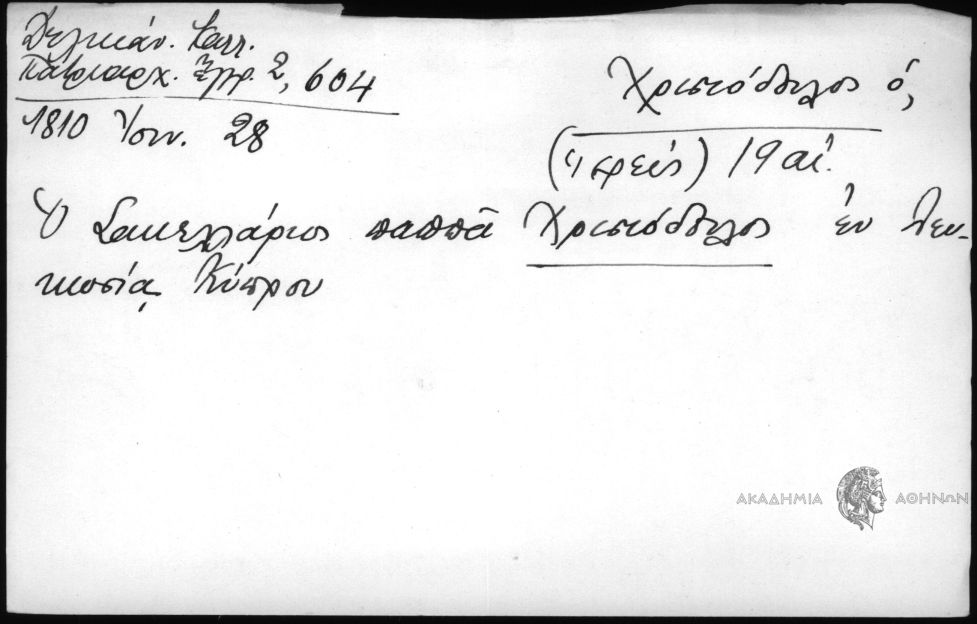 Δελικάν. Καλλ.
Πατριαρχ. Ἔγγρ. 2, 604
1810 Ἰουν. 28
Χριστόδουλος ὁ,
(ἱερεύς) 19 αἰ.
Ὁ Σακελλάριος παππᾶ Χριστόδουλος ἐν Λευ-
κωσίᾳ Κύπρου
ΑΚΑΔΗΜΙΑ ΑΘΗΝΩΝ